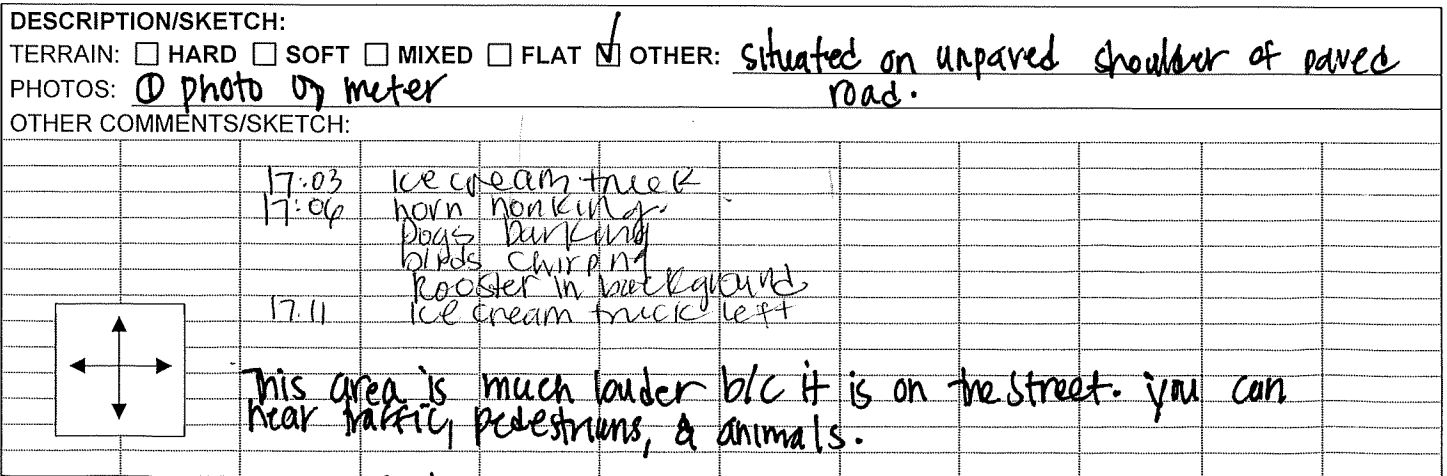 DESCRIPTION/SKETCH:
TERRAIN: ☐ HARD ☐ SOFT ☐ MIXED ☐ FLAT ☑ OTHER: situated on unpaved shoulder of paved
PHOTOS: ① photo of meter road.
OTHER COMMENTS/SKETCH:
17:03 Ice cream truck
17:06 horn honking.
Dogs barking
birds chirping
Rooster in background
17:11 Ice cream truck left
This area is much louder b/c it is on the street. you can
hear traffic, pedestrians, & animals.